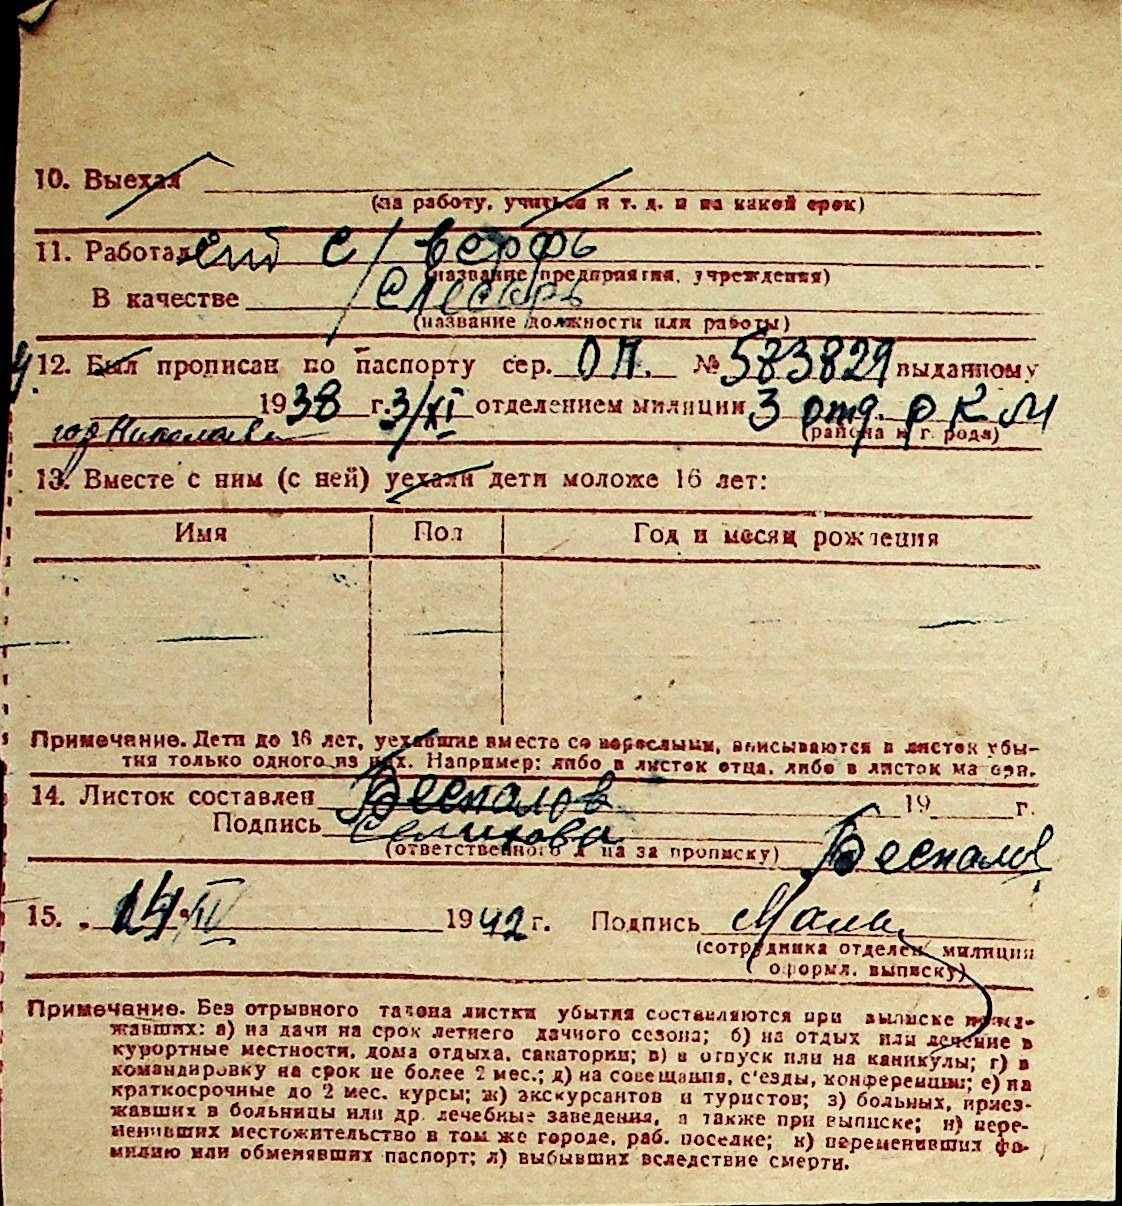 10. Выехал
(на работу, учиться и т. д. и на какой срок)
11. Работал с/верфь
(название предприятия, учреждения)
В качестве слесарь
(название должности или работы)
12. Был прописан по паспорту сер. ОП. № 573829 выданному
1938 г. 3/XI отделением милиции 3 отд. РКМ
гор Николаева (района и города)
13. Вместе с ним (с ней) уехали дети моложе 16 лет:
Имя Пол Год и месяц рождения
Примечание. Дети до 16 лет, уехавшие вместе со взрослыми, вписываются в листок убы-
тия только одного из них. Например: либо в листок отца, либо в листок матери.
14. Листок составлен Беспалов 19 г.
Подпись Селихова Беспалов
(ответственного л на за прописку)
15. 14.IV 1942 г. Подпись
(сотрудника отделен. милиции
оформл. выписку)
Примечание. Без отрывного талона листки убытия составляются при выписке
жавших: а) на дачи на срок летнего дачного сезона; б) на отдых или лечение в
курортные местности, дома отдыха, санатории; в) в отпуск или на каникулы; г) в
командировку на срок не более 2 мес.; д) на совещания, с'езды, конференции; е) на
краткосрочные до 2 мес. курсы; ж) экскурсантов и туристов; з) больных, приез-
жавших в больницы или др. лечебные заведения, а также при выписке; и) пере-
менивших местожительство в том же городе, раб. поселке; к) переменивших фа-
милию или обменявших паспорт; л) выбывших вследствие смерти.